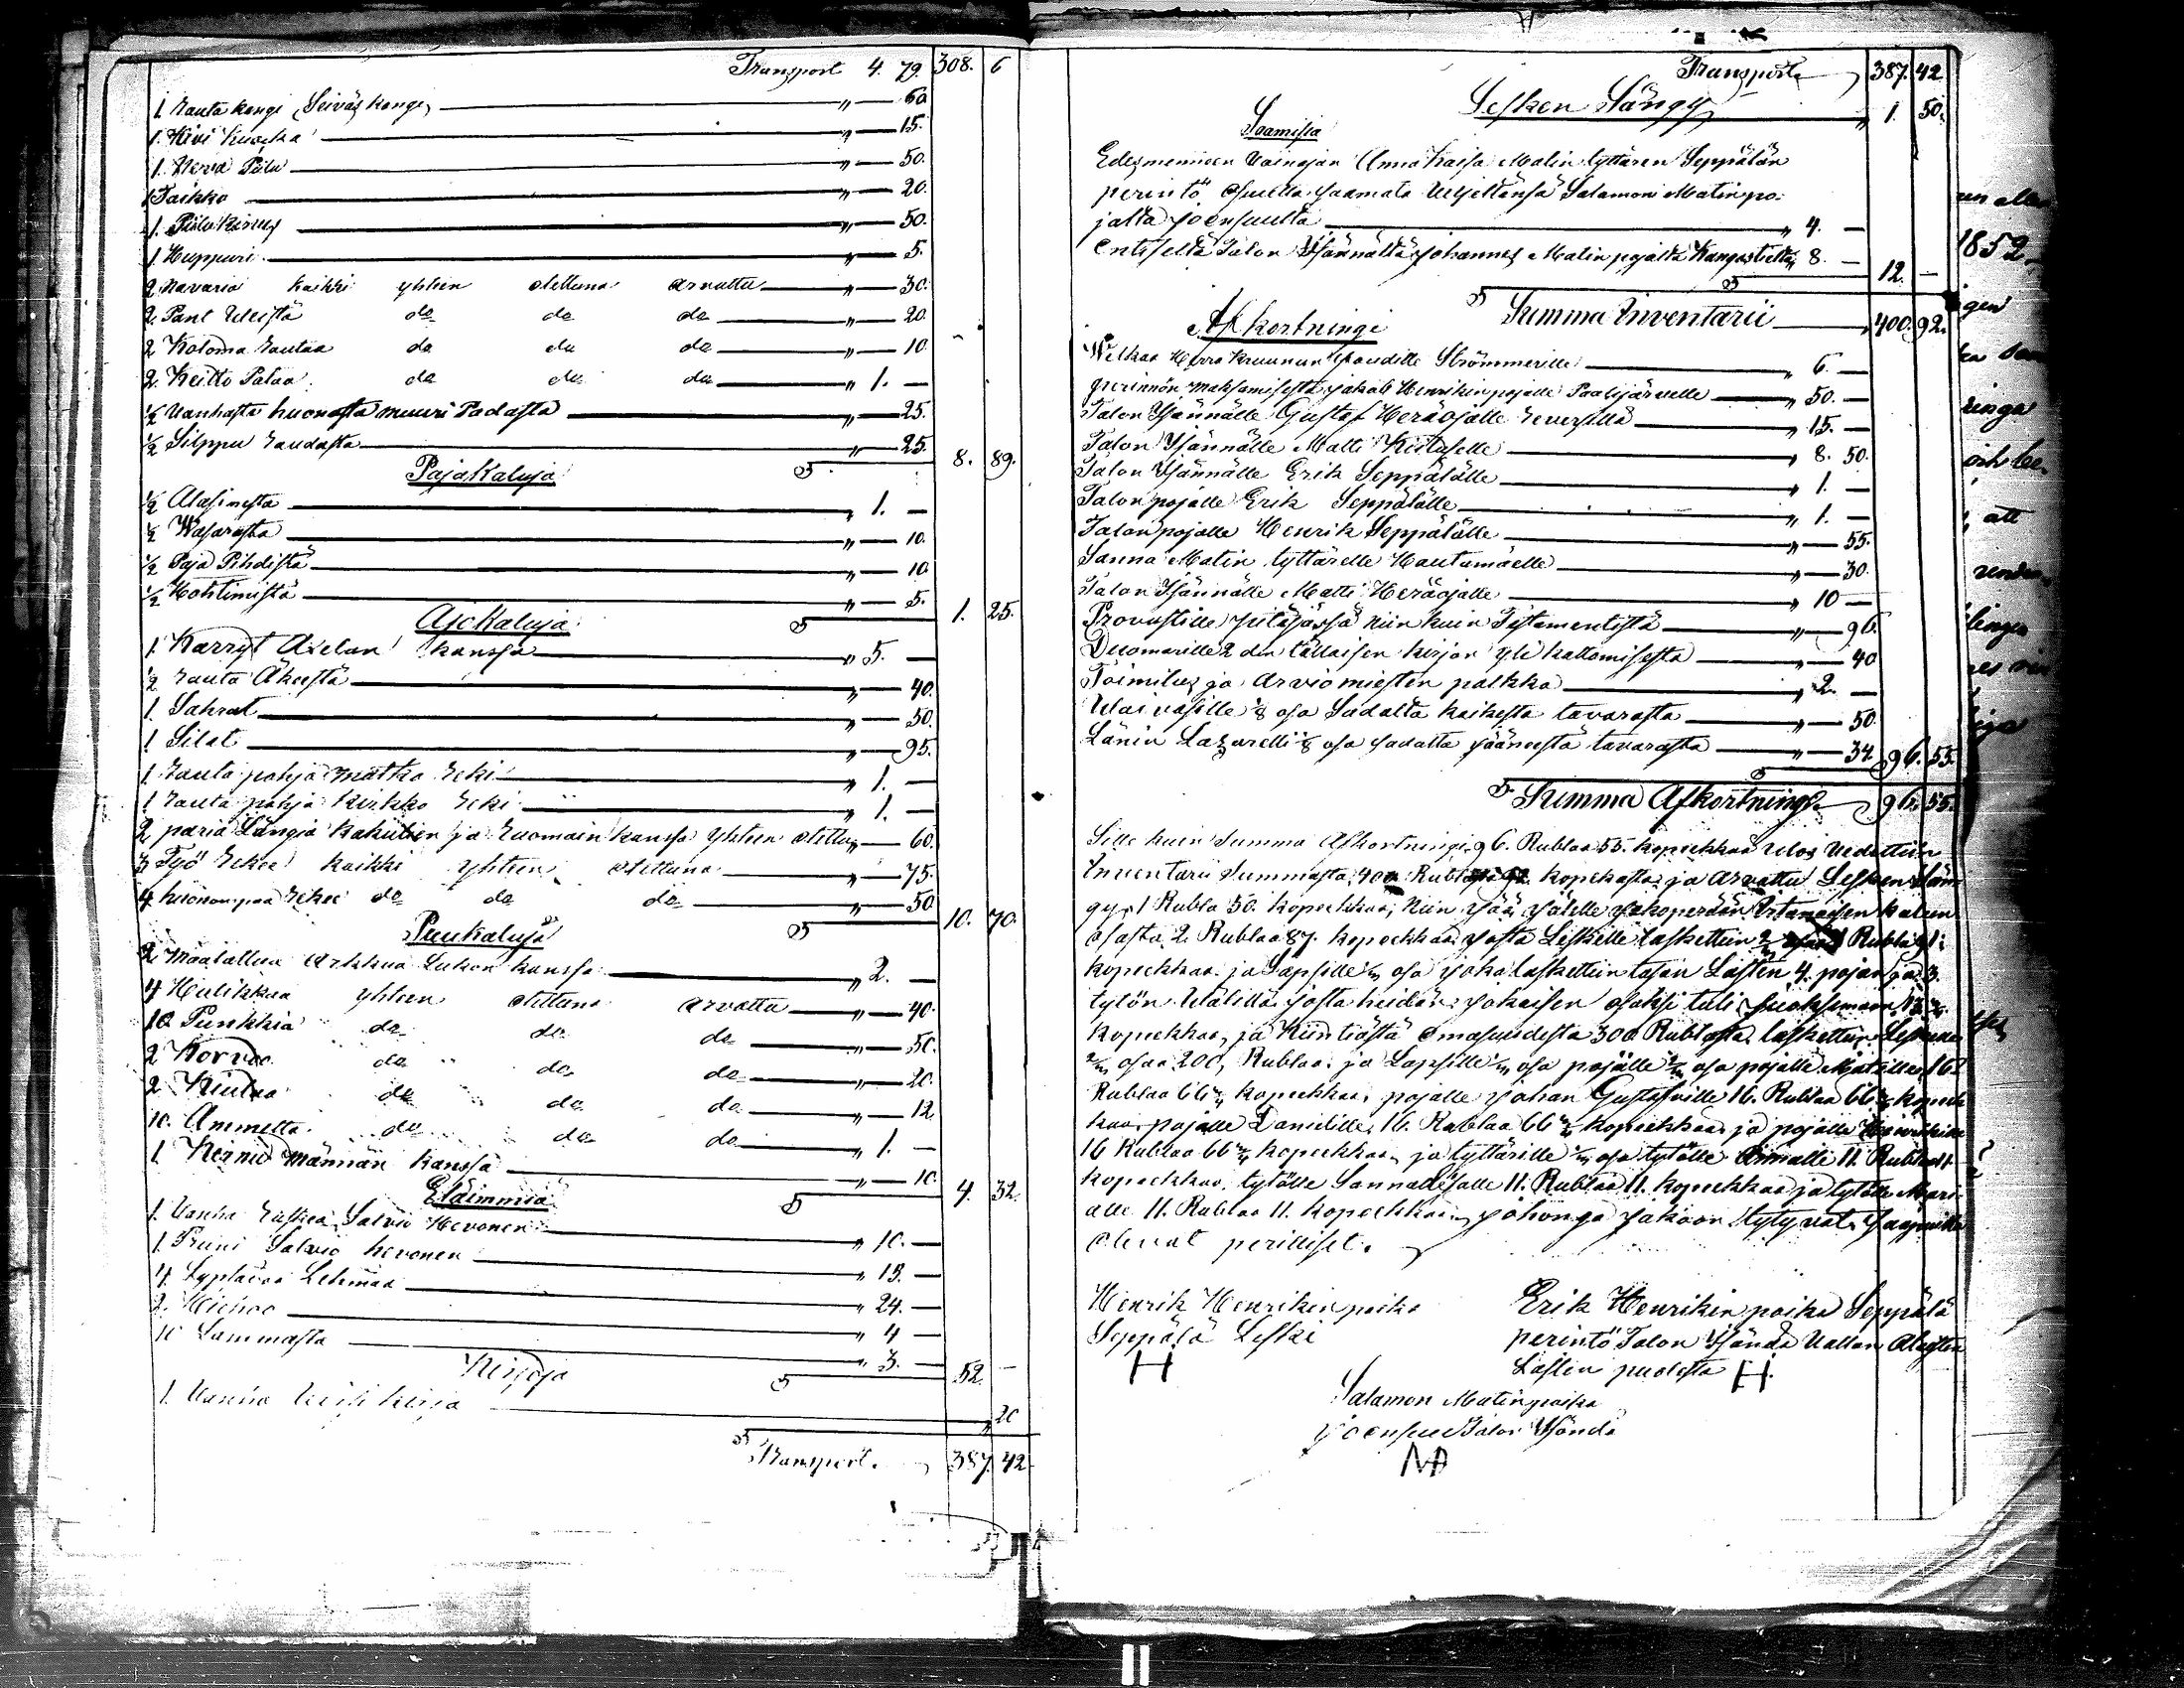 Transport 4. 79. 308. 6
1. Rauta kangi (Seiväs kangi) " 60
1. Kivi kuokka " 15.
1. Kerva Piilu " 50.
1 Taikko " 20.
1. Piilu kirves " 50.
1 Huppuri " 5.
2 Navaria kaikki yhteen otettuna arvattu " 30.
2. Pant do do do " 20
2 Koloma Rautaa do do do " 10
2. Keitto Pataa do do do " 1. —
½ Vanhasta huonosta muuri Padasta " 25.
½ Silppu Raudasta " 25. 8. 89.
Pajakaluja
½ Alasimesta " 1. —
½ Wasarasta " 10.
½ Paja Pihdistä " 10
½ Kohtimista " 5. 1. 25.
Ajokaluja
1. Karryt Axelan kanssa " 5. —
½ Rauta Äkeestä " 40.
1. Sahrat " 50.
1 Silat " 95.
1. Rauta pohja matka Reki " 1. —
1 Rauta pohja kirkko Reki " 1. —
2 paria Längiä Rahkeen ja Luomain kanssa yhteen otettu " 60.
3 Työ Rekee kaikki yhteen otettuna " 75.
4 huonompaa Rekee do do do " 50 10. 70.
Puukaluja
2 Maalattua Arkkua Lukon kanssa " 2. —
4 Hulikkaa yhteen otettuna arvattu " 40.
10 Punkkia do do do " 50.
2 Korvoo do do do " 20.
2 Kiulua do do do " 12
10. Ammetta do do do " 1. —
1 Kirnu männän kanssa " 10. 4. 32.
Eläimmiä
1. Vanha Ruskea Salvio Hevonen " 10. —
1. Pruni Salvio hevonen " 13. —
4. Lyptävää Lehmää " 24. —
2. Hiehoo " 4 —
10 Lammasta " 3. — 52. —
Kirjoja
1. Vanha kirja " 20
Transport. 387. 42
Transport 387. 42
Lesken Sängy " 1. 50.
Saamisia
Edesmenneen Vaimojan Anna Kaisa Matin tyttären Seppälän
perintö osuutta saamata Veljeltänsä Salamon Matin po:
jalta Joensuulta " 4. —
entiseltä Talon Isännältä Johannes Matin pojalta Kangastieltä " 8. — 12. —
Summa Inventarii 400. 92.
Afkortningi
Welkaa Herra Kruunun Voudille Strömmerille " 6. —
perinnön maksamisesta Jakob Henrikin pojalle Paalijärvelle " 50. —
Talon Isännälle Gustaf Heräojalle Reversillä " 15. —
Talon Isännälle Matti Kiitaselle " 8. 50.
Talon Isännälle Erik Seppälälle " 1. —
Talon pojalle Erik Seppälälle " 1. —
Talon pojalle Henrik Seppälälle " 55.
Sanna Matin tyttärelle Hautamäelle " 30.
Talon Isännälle Matti Heräojalle " 10 —
Provastille pitäjässä niin kuin Testamentistä " 96.
Duomarille 2 den tällaisen kirjon yli kattomisesta " 40
Toimitus ja arviomiesten palkka " 2. —
Vaivasille ⅛ osa Sadalta kaikesta tavarasta " 50.
Länin Lazaretti ⅛ osa sadatta jääneestä tavarasta " 34. 96. 55.
Summa Afkortningi 96. 55.
Sille kuin Summa Afkortningi 96. Rublaa 55. kopeekkaa Ulos Vedettiin
Inventarii Summasta 400 Rublasta 92. kopekasta ja arvattu Lesken Sän
gy 1 Rubla 50. kopeekkaa, niin jää jälelle Jakoperään Irtanaisen kalun
osasta 2. Rublaa 87. kopeekkaa josta Leskelle laskettiin 2/3 osaa 1 Rubla 91.
kopeekkaa ja Lapsille 1/3 osa joka laskettiin tasan Lasten 4. pojan ja 3.
tytön Välillä josta heidän jokaisen osaksi tuli juoksemaan 13
kopeekkaa, ja Kiintiästä omasuudesta 300 Rublasta laskettiin Leskelle
2/3 osaa 200, Rublaa ja Lapsille 1/3 osa pojalle 2/3 osa pojalle Matille 16
Rublaa 66 2/3 kopeekkaa, pojalle Johan Gustafville 16. Rublaa 66 2/3 kopeek
kaa, pojalle Danielille 16. Rublaa 66 2/3 kopeekkaa ja pojalle Henrikille
16 Rublaa 66 2/3 kopeekkaa, ja tyttärille 1/3 osa tytölle Annalle 11 Rublaa 11.
kopeekkaa, tytölle Sanna Lisalle 11. Rublaa 11. kopeekkaa ja tytölle Mari
alle 11. Rublaa 11. kopeekkaa, johonga jakoon tytyvät saapuvilla
olevat perilliset.
Henrik Henrikin poika Erik Henrikin poika Seppälä
Seppälä Leski perintö Talon Isändä Vallan Alaisten
Lasten puolesta
Salamon Matinpoika
Joensuu Talon Isändä
1852